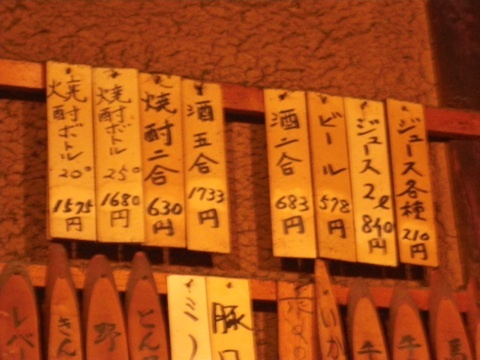 焼酎ボトル 20° 1575円
焼酎ボトル 25° 1680円
焼酎二合 630円
酒五合 1733円
酒二合 683円
ビール 578円
ジュース2ℓ 840円
ジュース各種 210円
レバ
きん
野
とん
ミノ
豚ロ
いか
牛
牛